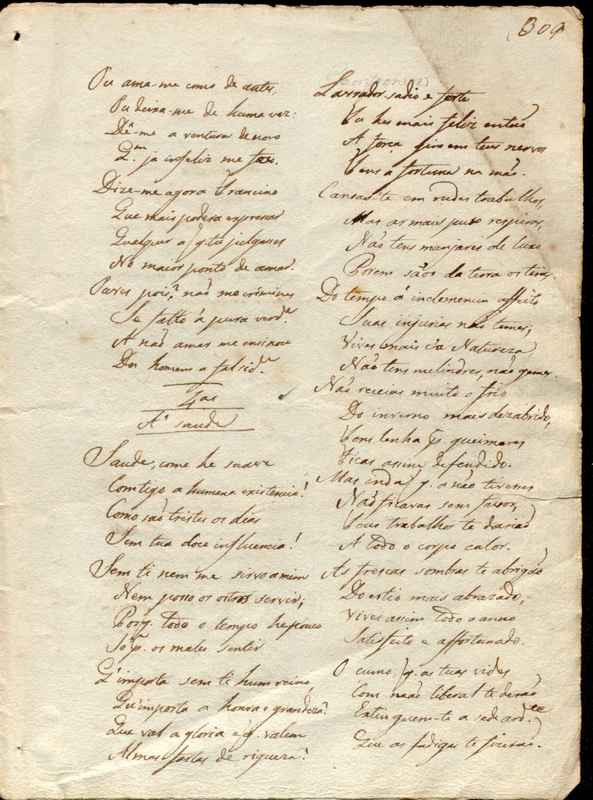 309
Ou ama-me como de antes,
Ou deixa-me de huma vez:
Dê-me a ventura de novo
Q.m já infeliz me fez.
Dize-me agora Francino
Que mais podera expressar
Qualquer a q. tu julgares
No maior ponto de amar.
Pares pois, não me crimines
Se falto á pura verd.e
A não amas me ensinou
Dos homens a falsid.e
4as
A' saude
Saude, como he suave
Comtigo a humana existencia!
Como são tristes os dias
Sem tua doce influencia!
Sem ti nem me sirvo a mim
Nem posso os outros servir;
Porq. todo o tempo he pouco
So p.a os males sentir
Q' importa sem ti hum reino,
Qu' importa a honra e grandeza?
Que val a gloria e q. valem
Almas fartas de riqueza!
Lavrador sadio e forte
Tu hes mais feliz então
A força tens em teus nervos
Tens a fortuna na mão.
Cansas-te em rudes trabalhos,
Mas as mais puro respiras,
Não tens manjares de luxo
Porem sãos da terra os tiras.
Do tempo á inclemencia affeito
Suas injurias não temes;
Vives mais c'a Natureza
Não tens melindres, não gemes.
Não receias muito o frio
Do inverno mais desabrido,
Tens lenha q. queimares
Ficas assim defendido.
Mas inda q. a não tiveras
Não ficavas sem favor,
Teus trabalhos te darião
A todo o corpo calor.
As frescas sombras te abrigão
Do estio mais abrazado;
Vives assim todo o anno
Satisfeito e affortunado.
O çumo, q. as tuas vides
Com mão liberal te derão
Extinguem-te a sede ard.te
Que as fadigas te fizerão.